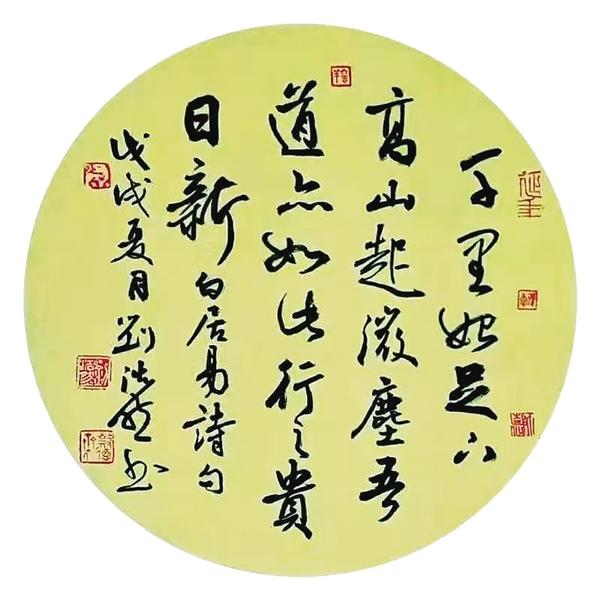 千里始足下
高山起微塵吾
道亦如此行之貴
日新 白居易詩句
戊戌夏月劉書
延年